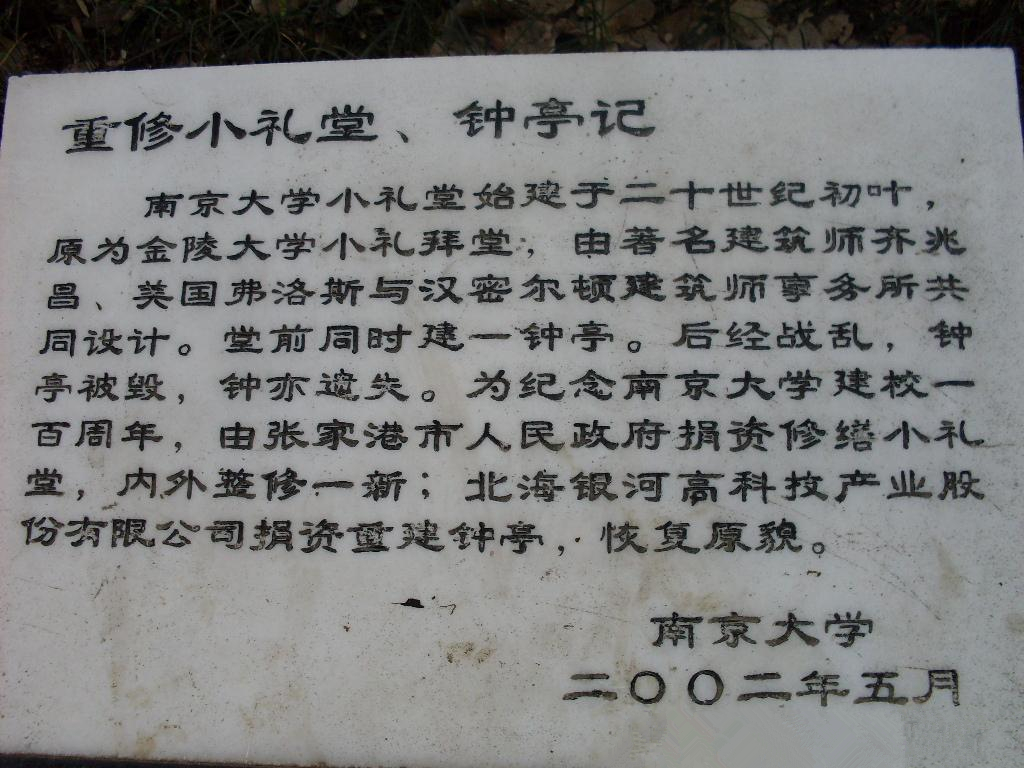 重修小礼堂、钟亭记
南京大学小礼堂始建于二十世纪初叶，
原为金陵大学小礼拜堂，由著名建筑师齐兆
昌、美国弗洛斯与汉密尔顿建筑师事务所共
同设计。堂前同时建一钟亭。后经战乱，钟
亭被毁，钟亦遗失。为纪念南京大学建校一
百周年，由张家港市人民政府捐资修缮小礼
堂，内外整修一新；北海银河高科技产业股
份有限公司捐资重建钟亭，恢复原貌。
南京大学
二〇〇二年五月